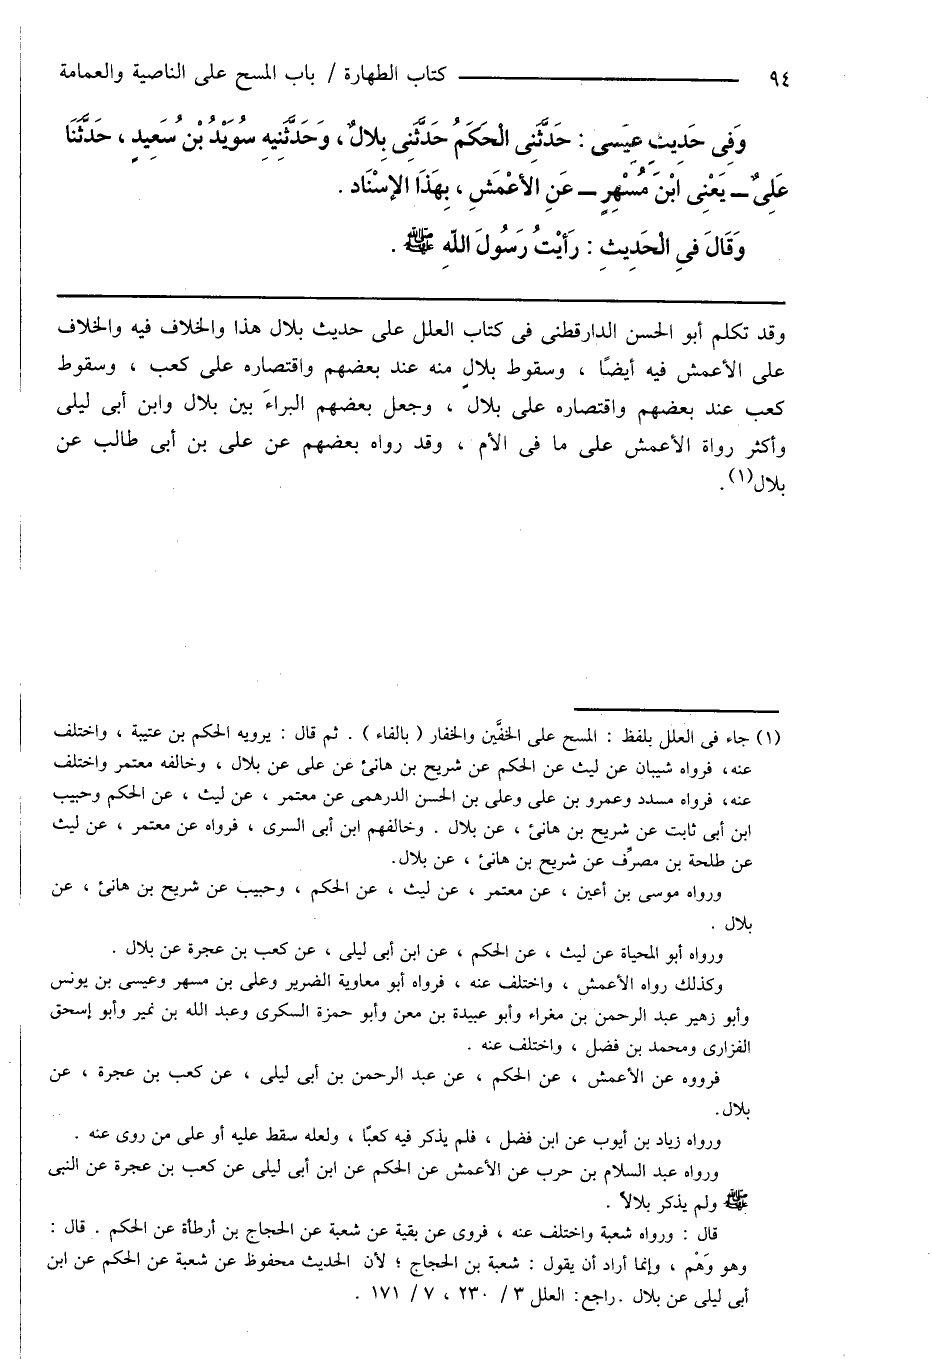 ٩٤ ــــــــــــ كتاب الطهارة / باب المسح على الناصية والعمامة
وَفِى حَدِيثِ عِيسَى : حَدَّثَنِى الْحَكَمُ حَدَّثَنِى بِلَالٌ، وَحَدَّثَنِيهِ سُوَيْدُ بْنُ سَعِيدٍ ، حَدَّثَنَا
عَلِىٌّ ــ يَعْنِى ابْنَ مُسْهِرٍ ــ عَنِ الأَعْمَشِ ، بِهَذَا الإِسْنَاد .
وَقَالَ فِى الْحَدِيثِ : رَأَيْتُ رَسُولَ اللّهِ ﷺ .
وقد تكلم أبو الحسن الدارقطنى فى كتاب العلل على حديث بلال هذا والخلاف فيه والخلاف
على الأعمش فيه أيضًا ، وسقوط بلالٍ منه عند بعضهم واقتصاره على كعب ، وسقوط
كعب عند بعضهم واقتصاره على بلال ، وجعل بعضهم البراءَ بين بلال وابن أبى ليلى
وأكثر رواة الأعمش على ما فى الأم ، وقد رواه بعضهم عن على بن أبى طالب عن
بلال(١).
(١) جاء فى العلل بلفظ : المسح على الخفَّين والخفار ( بالفاء ) . ثم قال : يرويه الحكم بن عتيبة ، واختلف
عنه، فرواه شيبان عن ليث عن الحكم عن شريح بن هانئ عن على عن بلال ، وخالفه معتمر واختلف
عنه، فرواه مسدد وعمرو بن على وعلى بن الحسن الدرهمى عن معتمر ، عن ليث ، عن الحكم وحبيب
ابن أبى ثابت عن شريح بن هانئ ، عن بلال . وخالفهم ابن أبى السرى ، فرواه عن معتمر ، عن ليث
عن طلحة بن مصرِّف عن شريح بن هانئ ، عن بلال.
ورواه موسى بن أعين ، عن معتمر ، عن ليث ، عن الحكم ، وحبيب عن شريح بن هانئ ، عن
بلال .
ورواه أبو المحياة عن ليث ، عن الحكم ، عن ابن أبى ليلى ، عن كعب بن عجرة عن بلال .
وكذلك رواه الأعمش ، واختلف عنه ، فرواه أبو معاوية الضرير وعلى بن مسهر وعيسى بن يونس
وأبو زهير عبد الرحمن بن مغراء وأبو عبيدة بن معن وأبو حمزة السكرى وعبد الله بن نمير وأبو إسحق
الفزارى ومحمد بن فضل ، واختلف عنه .
فرووه عن الأعمش ، عن الحكم ، عن عبد الرحمن بن أبى ليلى ، عن كعب بن عجرة ، عن
بلال.
ورواه زياد بن أيوب عن ابن فضل ، فلم يذكر فيه كعبًا ، ولعله سقط عليه أو على من روى عنه .
ورواه عبد السلام بن حرب عن الأعمش عن الحكم عن ابن أبى ليلى عن كعب بن عجرة عن النبى
ﷺ ولم يذكر بلالاً .
قال : ورواه شعبة واختلف عنه ، فروى عن بقية عن شعبة عن الحجاج بن أرطأة عن الحكم . قال :
وهو وَهْم ، وإنما أراد أن يقول : شعبة بن الحجاج ؛ لأن الحديث محفوظ عن شعبة عن الحكم عن ابن
أبى ليلى عن بلال .راجع: العلل ٣ / ٢٣٠ ، ٧ / ١٧١ .